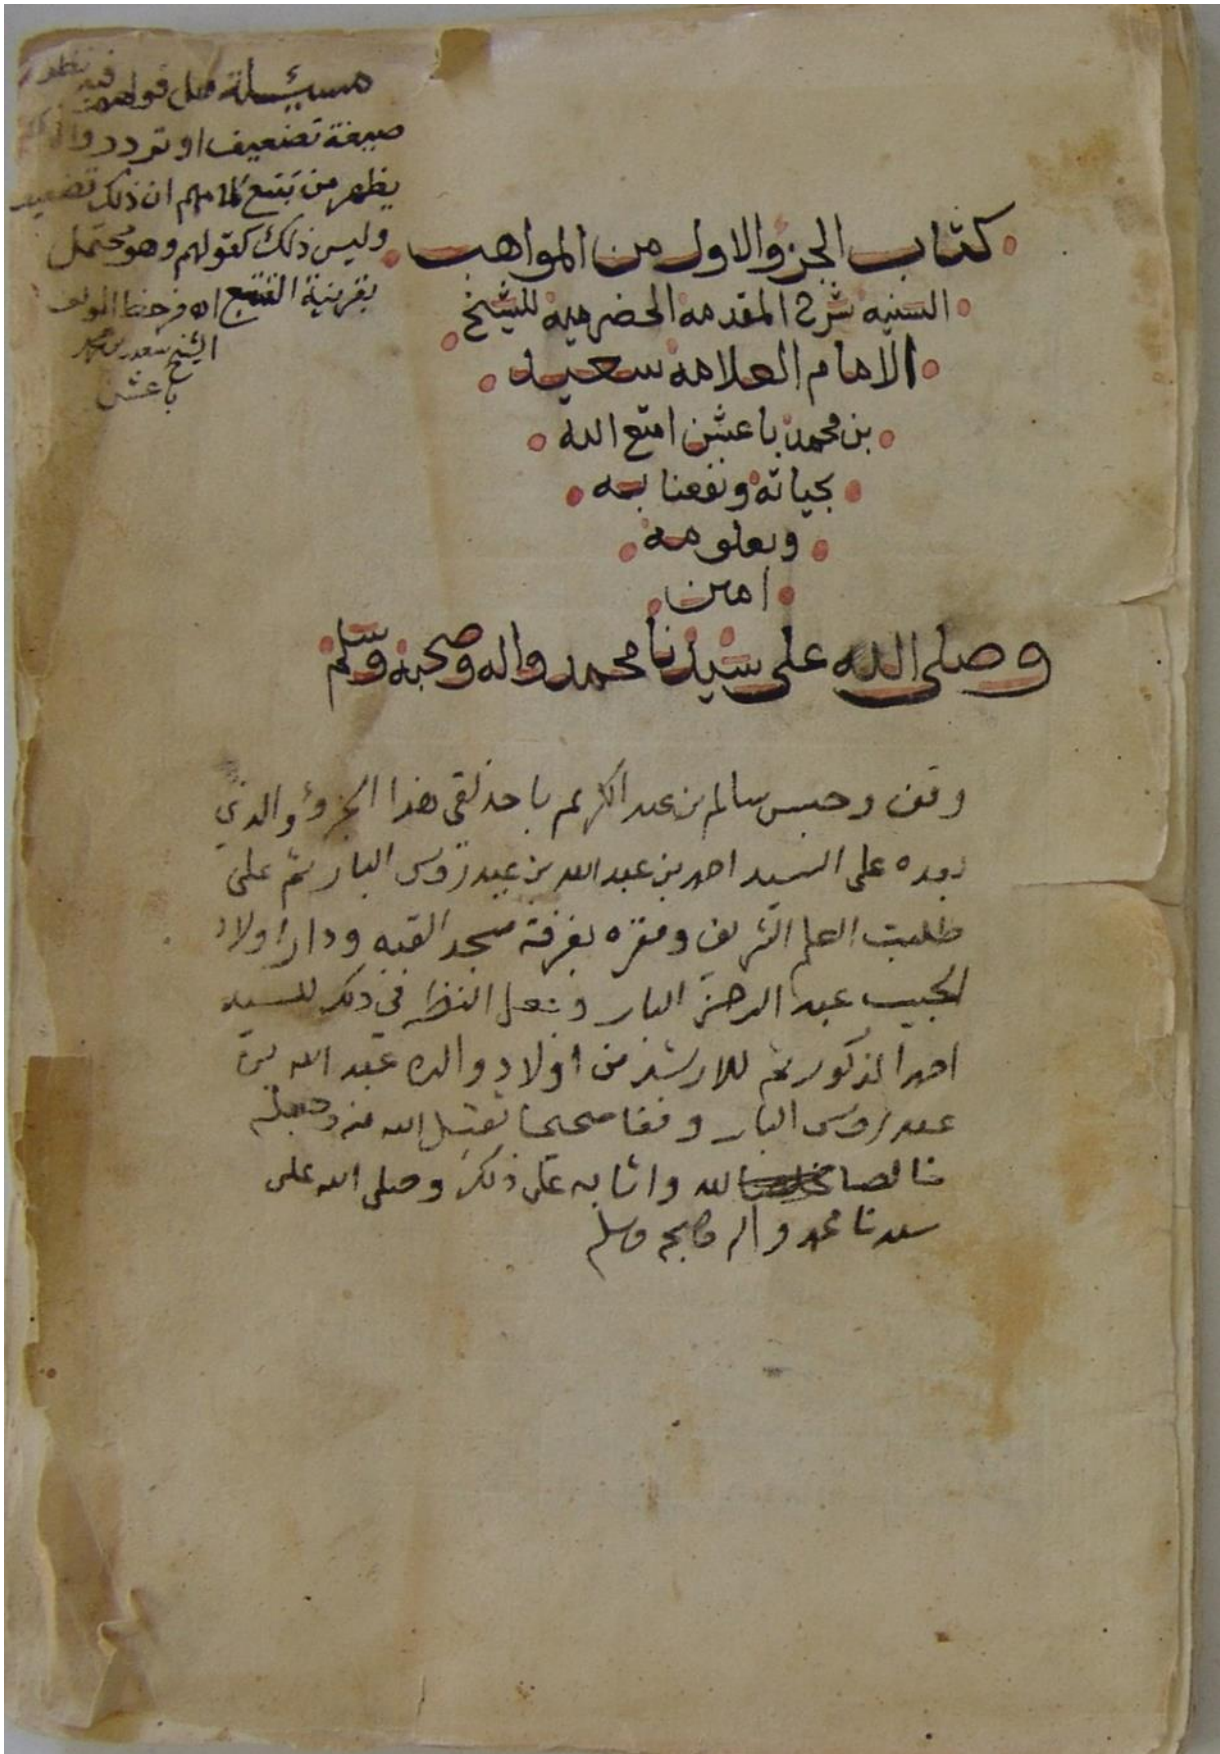 مسيئلة هل قولهم فيه نظر
صيغة تضعيف او تردد
يظهر من تتبع كلامهم ان ذلك تضعيف
وليس ذلك كقولهم وهو محتمل
بقرينة التتبع اه من خط المولف
الشيخ سعيد بن محمد
باعشن
كتاب الجزؤ الاول من المواهب
السنيه شرح المقدمه الحضرميه للشيخ
الامام العلامه سعيد
بن محمد باعشن امتع الله
بحياته ونفعنا به
وبعلومه
امين
وصلى الله على سيدنا محمد واله وصحبه وسلم
وقف وحبس سالم بن عبد الكريم باحذلقي هذا الجزؤ والذي
بعده على السيد احمد بن عبد الله بن عيدروس البار ثم على
طلبت العلم الشريف ومقره بغرفة مسجد القبه ودار اولاد
الحبيب عبد الرحمن البار وجعل النظر في ذلك للسيد
احمد المذكور ثم للارشد من اولاد والده عبد الله بن
عيدروس البار وقفا صحيحا تقبل الله منه وجعله
خالصا لله واثابه على ذلك وصلى الله على
سيدنا محمد واله وصحبه وسلم